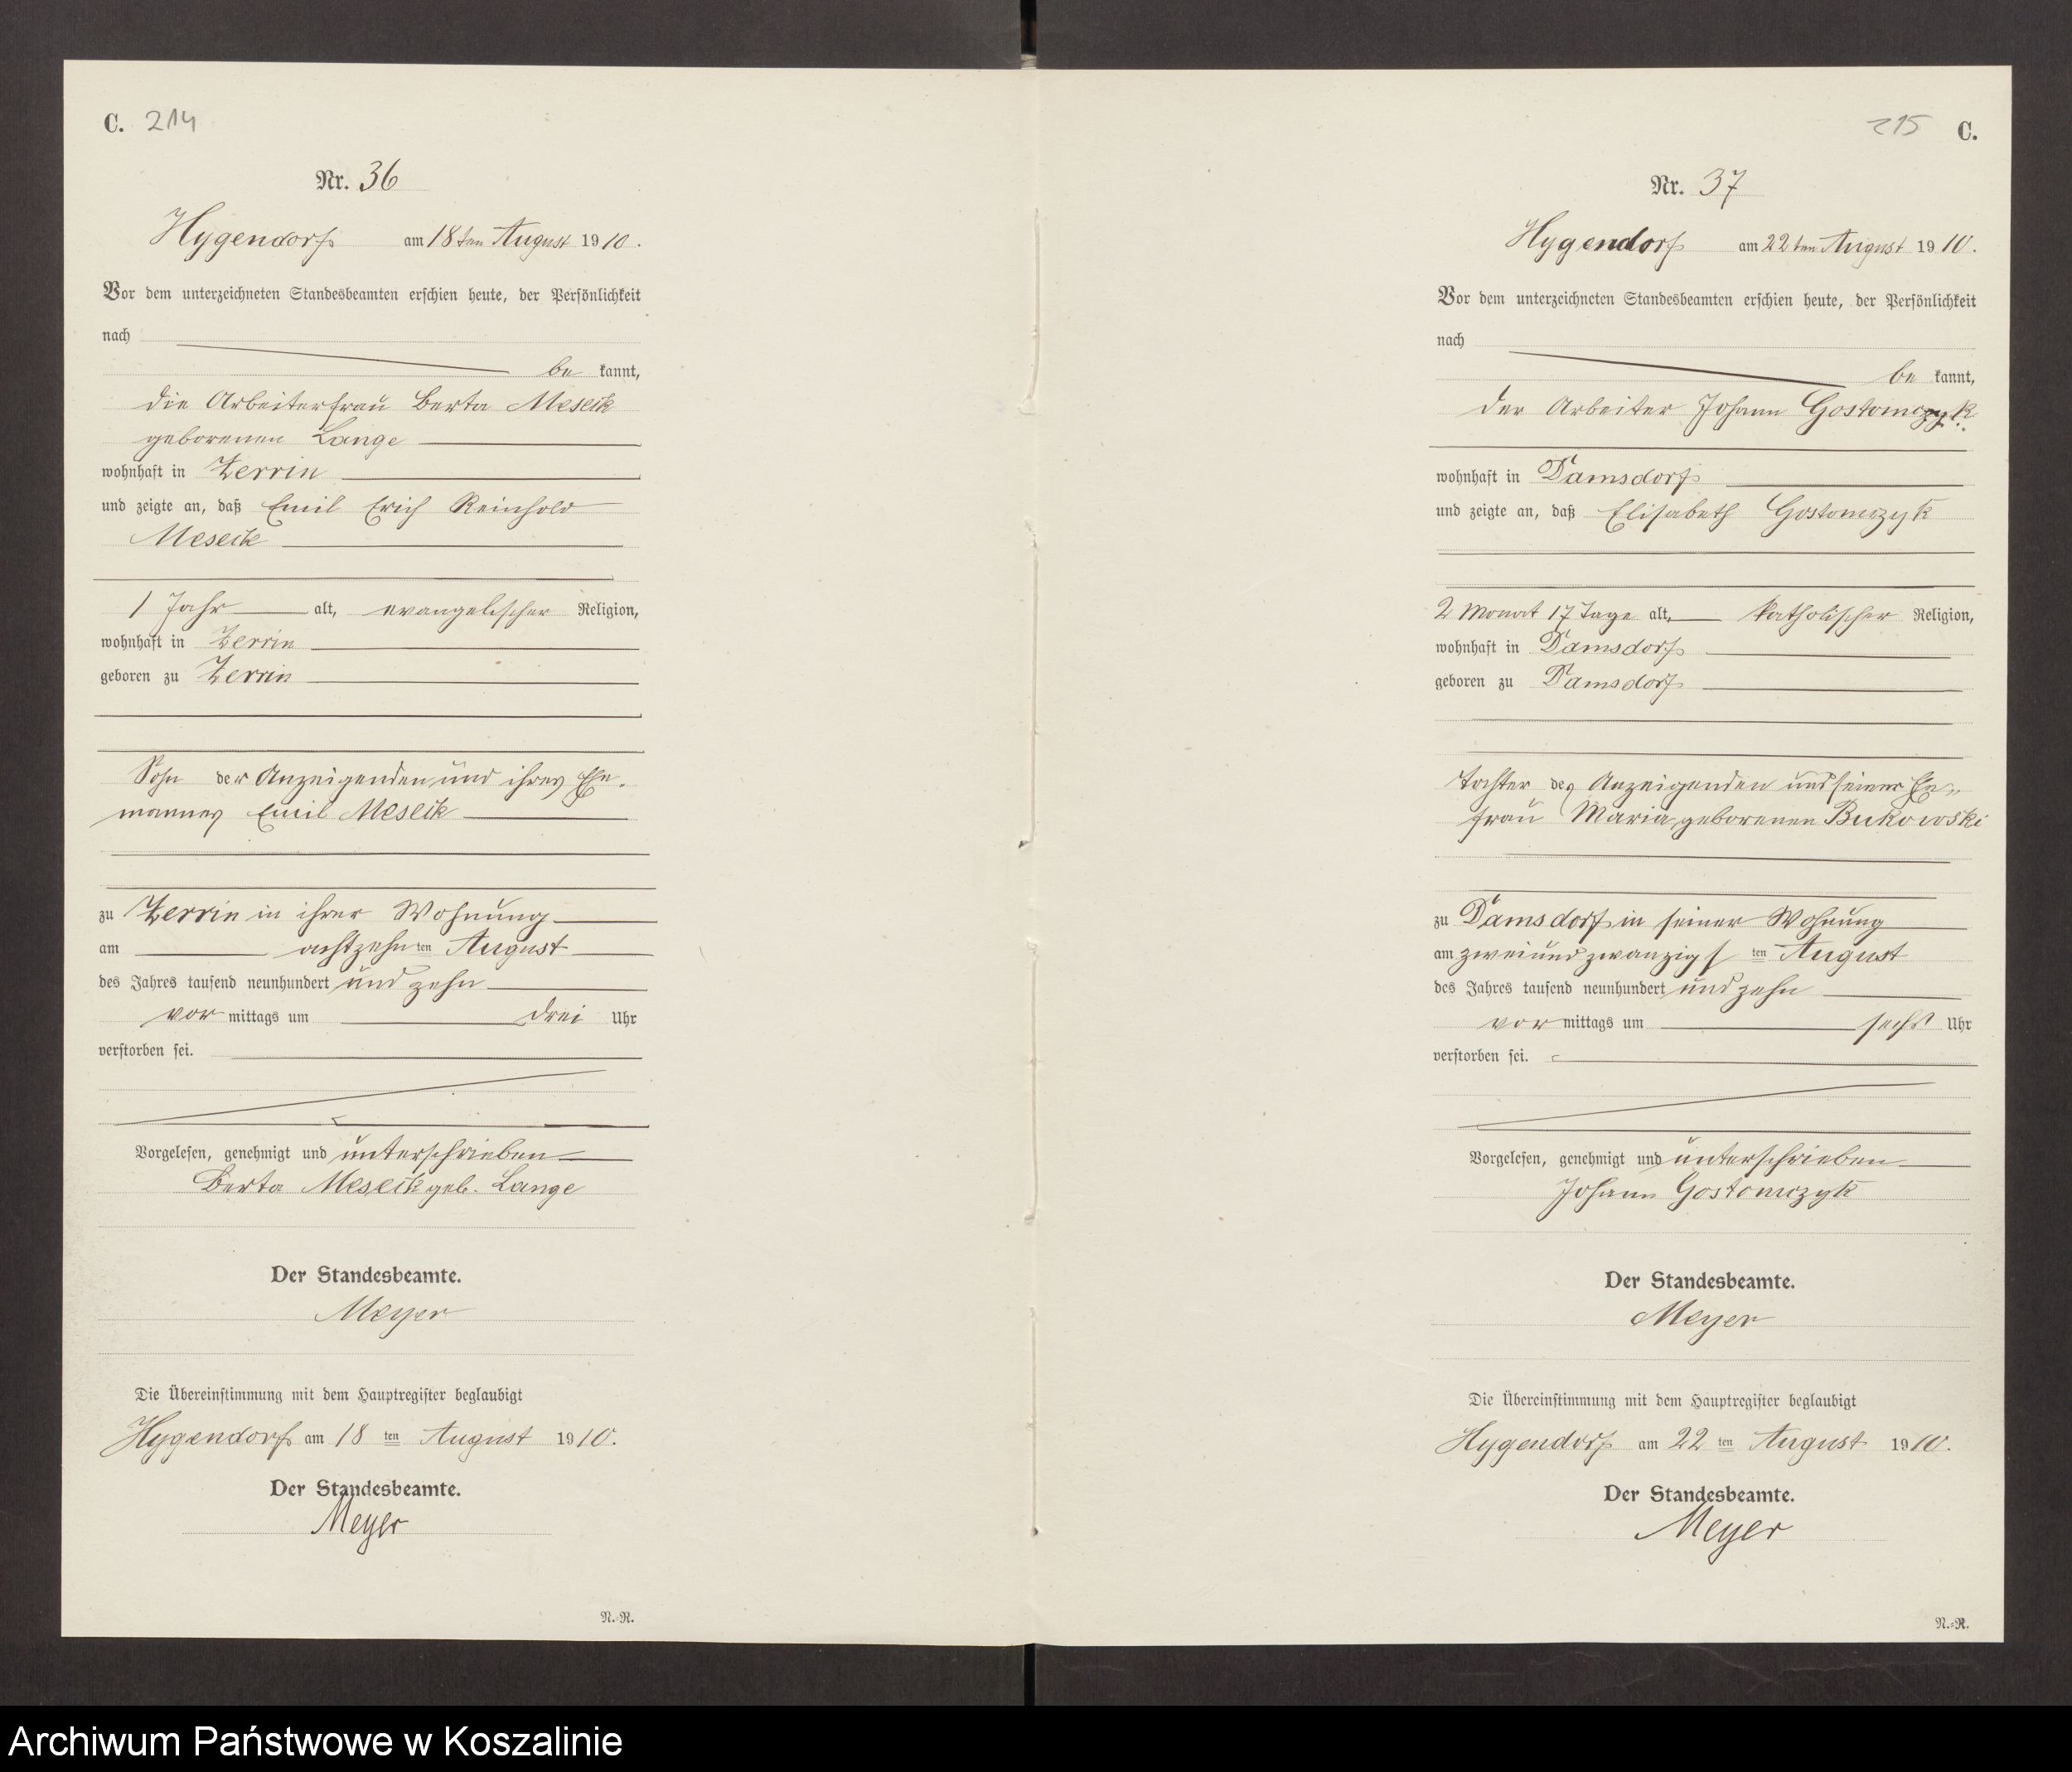 C. 214
Nr. 36
Hygendorf am 18ten August 1910.
Vor dem unterzeichneten Standesbeamten erschien heute, der Persönlichkeit
nach
be kannt,
die Arbeiterfrau Berta Meseck
geborenen Lange
wohnhaft in Zerrin
und zeigte an, daß Emil Erich Reinhold
Meseck
1 Jahr alt, evangelischer Religion,
wohnhaft in Zerrin
geboren zu Zerrin
Sohn der Anzeigenden und ihres Ehe-
mannes Emil Meseck
zu Zerrin in ihrer Wohnung
am achtzehn ten August
des Jahres tausend neunhundert und zehn
vor mittags um drei Uhr
verstorben sei.
Vorgelesen, genehmigt und unterschrieben
Berta Meseck geb. Lange
Der Standesbeamte.
Meyer
Die Übereinstimmung mit dem Hauptregister beglaubigt
Hygendorf am 18 ten August 1910.
Der Standesbeamte.
Meyer
N.-R.
215 C.
Nr. 37
Hygendorf am 22ten August 1910.
Vor dem unterzeichneten Standesbeamten erschien heute, der Persönlichkeit
nach
be kannt,
der Arbeiter Johann Gostomczyk
wohnhaft in Damsdorf
und zeigte an, daß Elisabeth Gostomczyk
2 Monat 17 Tage alt, katholischer Religion,
wohnhaft in Damsdorf
geboren zu Damsdorf
Tochter des Anzeigenden und seiner Ehe-
frau Maria geborenen Bukowski
zu Damsdorf in seiner Wohnung
am zweiundzwanzigsten August
des Jahres tausend neunhundert und zehn
vor mittags um sechs Uhr
verstorben sei.
Vorgelesen, genehmigt und unterschrieben
Johann Gostomczyk
Der Standesbeamte.
Meyer
Die Übereinstimmung mit dem Hauptregister beglaubigt
Hygendorf am 22 ten August 1910.
Der Standesbeamte.
Meyer
N.-R.
Archiwum Państwowe w Koszalinie